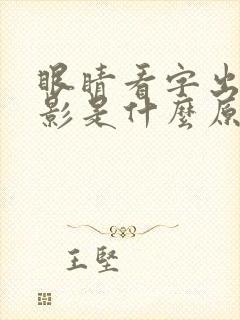 眼睛看字出
影是什麼原
王堅